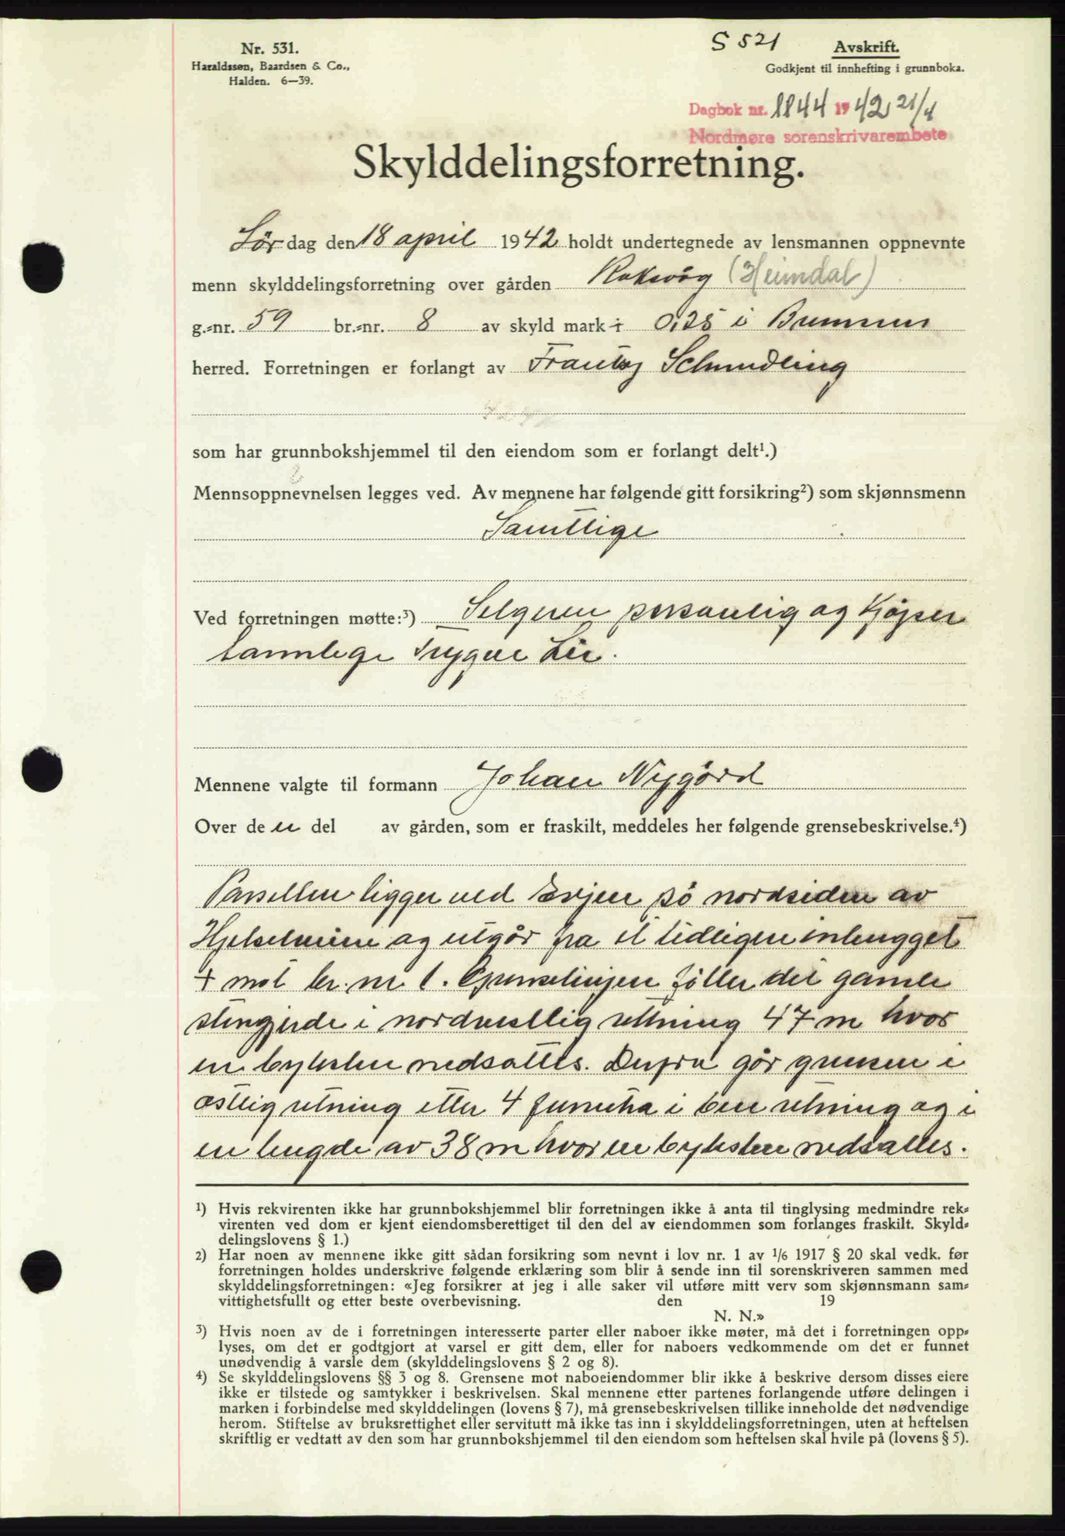 Nr. 531.
Haraldssen, Baardsen & Co.,
Halden. 6—39.
S 521
Avskrift.
Godkjent til innhefting i grunnboka.
Dagbok nr. 1844 1942 21/4
Nordmøre sorenskrivarembete
Skylddelingsforretning.
Lør dag den 18 april 1942 holdt undertegnede av lensmannen oppnevnte
menn skylddelingsforretning over gården Roksvåg (Heimdal)
g.=nr. 59 br.=nr. 8 av skyld mark 0,25 i Bremsnes
herred. Forretningen er forlangt av Frantz Schmedling
som har grunnbokshjemmel til den eiendom som er forlangt delt¹.)
Mennsoppnevnelsen legges ved. Av mennene har følgende gitt forsikring²) som skjønnsmenn
Samtlige
Ved forretningen møtte:³) Selgeren personlig og Kjøper
Trygve Lie.
Mennene valgte til formann Johan Nygård
Over de n del av gården, som er fraskilt, meddeles her følgende grensebeskrivelse.⁴)
Parsellen ligger ved på nordsiden av
og utgår fra et tidligere inhugget
+ mot br. nr 1. Grenselinjen føller det gamle
stengjerde i nordvestlig retning 47 m hvor
en byttesten nedsattes. Derfra går grensen i
østlig retning etter 4 i ben retning og i
en lengde av 38 m hvor en byttesten nedsattes.
¹) Hvis rekvirenten ikke har grunnbokshjemmel blir forretningen ikke å anta til tinglysing medmindre rek=
virenten ved dom er kjent eiendomsberettiget til den del av eiendommen som forlanges fraskilt. Skyld=
delingslovens § 1.)
²) Har noen av mennene ikke gitt sådan forsikring som nevnt i lov nr. 1 av ¹/₆ 1917 § 20 skal vedk. før
forretningen holdes underskrive følgende erklæring som blir å sende inn til sorenskriveren sammen med
skylddelingsforretningen: «Jeg forsikrer at jeg i alle saker vil utføre mitt verv som skjønnsmann sam=
vittighetsfullt og etter beste overbevisning. den 19
N. N.»
³) Hvis noen av de i forretningen interesserte parter eller naboer ikke møter, må det i forretningen opp=
lyses, om det er godtgjort at varsel er gitt dem, eller for naboers vedkommende om det er funnet
unødvendig å varsle dem (skylddelingslovens § 2 og 8).
⁴) Se skylddelingslovens §§ 3 og 8. Grensene mot naboeiendommer blir ikke å beskrive dersom disses eiere
ikke er tilstede og samtykker i beskrivelsen. Skal mennene etter partenes forlangende utføre delingen i
marken i forbindelse med skylddelingen (lovens § 7), må grensebeskrivelsen tillike inneholde det nødvendige
herom. Stiftelse av bruksrettighet eller servitutt må ikke tas inn i skylddelingsforretningen, uten at heftelsen
skriftlig er vedtatt av den som har grunnbokshjemmel til den eiendom som heftelsen skal hvile på (lovens § 5).